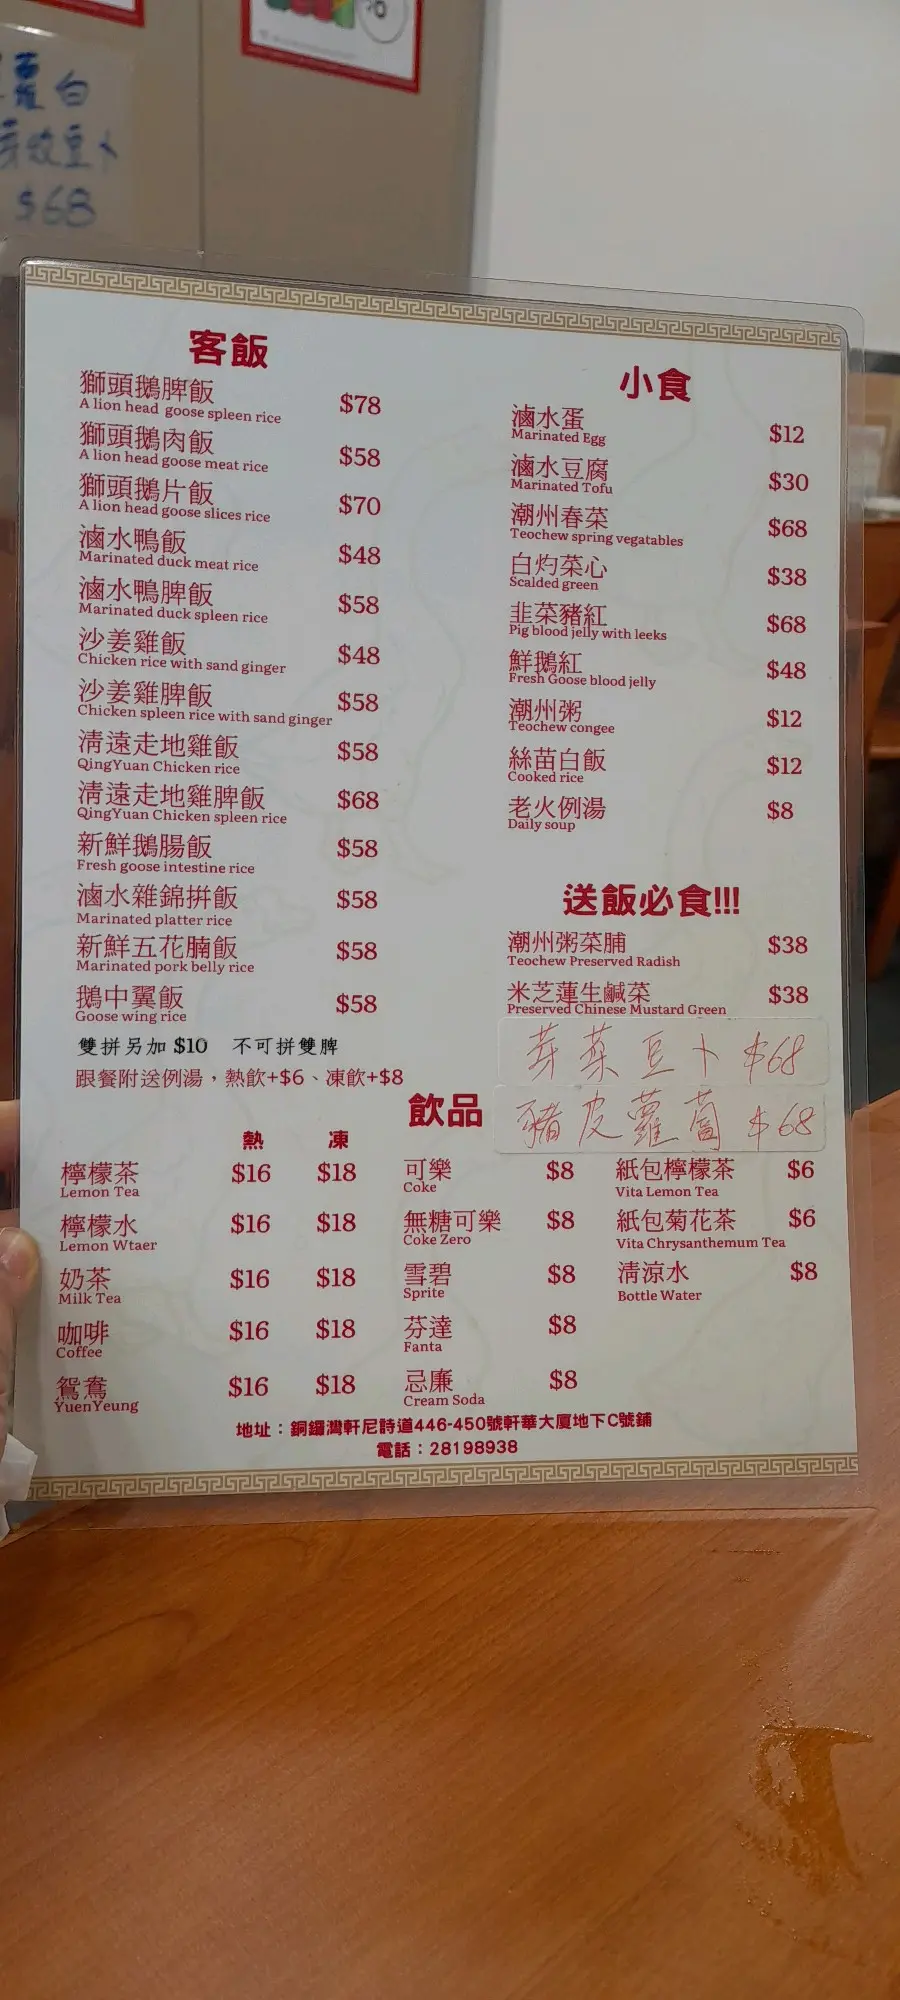 蘿白
豆卜
$68
客飯
獅頭鵝脾飯 $78
A lion head goose spleen rice
獅頭鵝肉飯 $58
A lion head goose meat rice
獅頭鵝片飯 $70
A lion head goose slices rice
滷水鴨飯 $48
Marinated duck meat rice
滷水鴨脾飯 $58
Marinated duck spleen rice
沙姜雞飯 $48
Chicken rice with sand ginger
沙姜雞脾飯 $58
Chicken spleen rice with sand ginger
清遠走地雞飯 $58
QingYuan Chicken rice
清遠走地雞脾飯 $68
QingYuan Chicken spleen rice
新鮮鵝腸飯 $58
Fresh goose intestine rice
滷水雜錦拼飯 $58
Marinated platter rice
新鮮五花腩飯 $58
Marinated pork belly rice
鵝中翼飯 $58
Goose wing rice
雙拼另加 $10 不可拼雙脾
跟餐附送例湯，熱飲+$6、凍飲+$8
小食
滷水蛋 $12
Marinated Egg
滷水豆腐 $30
Marinated Tofu
潮州春菜 $68
Teochew spring vegatables
白灼菜心 $38
Scalded green
韭菜豬紅 $68
Pig blood jelly with leeks
鮮鵝紅 $48
Fresh Goose blood jelly
潮州粥 $12
Teochew congee
絲苗白飯 $12
Cooked rice
老火例湯 $8
Daily soup
送飯必食!!!
潮州粥菜脯 $38
Teochew Preserved Radish
米芝蓮生鹹菜 $38
Preserved Chinese Mustard Green
芽菜豆卜 $68
豬皮蘿蔔 $68
飲品
熱 凍
檸檬茶 $16 $18
Lemon Tea
檸檬水 $16 $18
Lemon Wtaer
奶茶 $16 $18
Milk Tea
咖啡 $16 $18
Coffee
鴛鴦 $16 $18
YuenYeung
可樂 $8
Coke
無糖可樂 $8
Coke Zero
雪碧 $8
Sprite
芬達 $8
Fanta
忌廉 $8
Cream Soda
紙包檸檬茶 $6
Vita Lemon Tea
紙包菊花茶 $6
Vita Chrysanthemum Tea
清涼水 $8
Bottle Water
地址：銅鑼灣軒尼詩道446-450號軒華大厦地下C號鋪
電話：28198938